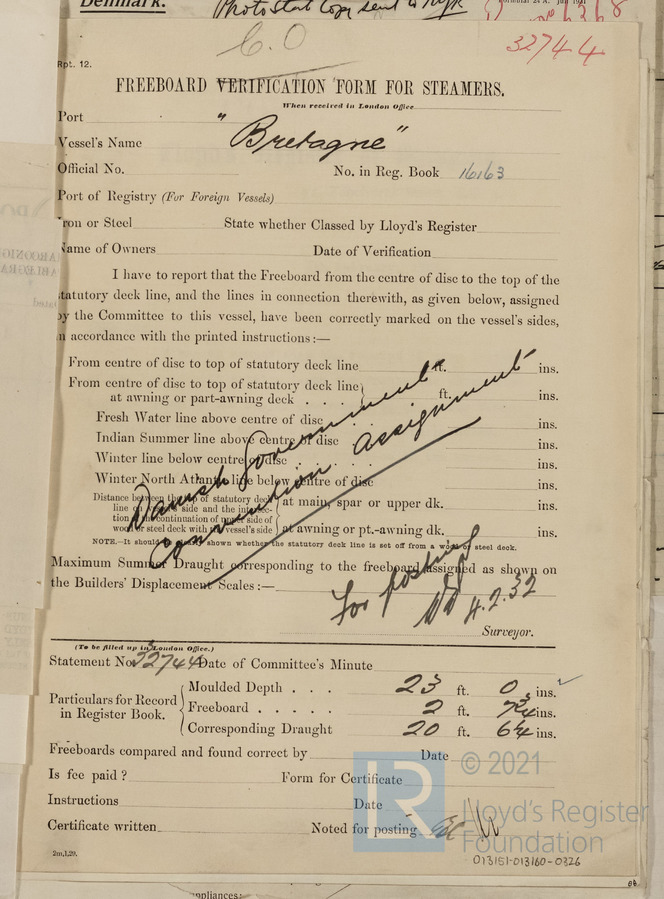 Denmark.
Photostat Copy sent to
6368
C.O
32744
Rpt. 12.
FREEBOARD VERIFICATION FORM FOR STEAMERS.
When received in London Office
Port
Vessel's Name "Bretagne"
Official No. No. in Reg. Book 16163
Port of Registry (For Foreign Vessels)
Iron or Steel State whether Classed by Lloyd's Register
Name of Owners Date of Verification
I have to report that the Freeboard from the centre of disc to the top of the
statutory deck line, and the lines in connection therewith, as given below, assigned
by the Committee to this vessel, have been correctly marked on the vessel's sides,
in accordance with the printed instructions:—
From centre of disc to top of statutory deck line ft. ins.
From centre of disc to top of statutory deck line
at awning or part-awning deck . . . ft. ins.
Fresh Water line above centre of disc . . . ins.
Indian Summer line above centre of disc ins.
Winter line below centre of disc . . . . ins.
Winter North Atlantic line below centre of disc ins.
Distance between the top of statutory deck
line on vessel's side and the intersec-
tion of the continuation of upper side of
wood or steel deck with the vessel's side
at main, spar or upper dk. ins.
at awning or pt.-awning dk. ins.
Danish Government
Convention assignment
NOTE.—It should be clearly shown whether the statutory deck line is set off from a wood or steel deck.
Maximum Summer Draught corresponding to the freeboard assigned as shown on
the Builders' Displacement Scales:—
For posting
4.2.32
Surveyor.
(To be filled up in London Office.)
Statement No. 32744 Date of Committee's Minute
Particulars for Record
in Register Book.
Moulded Depth . . . 23 ft. 0 ins.
Freeboard . . . . . 2 ft. 7¾ ins.
Corresponding Draught 20 ft. 6¼ ins.
Freeboards compared and found correct by Date
Is fee paid? Form for Certificate
Instructions Date
Certificate written Noted for posting
2m,1,29.
LR
© 2021
Lloyd's Register
Foundation
013151-013160-0326
ppliances: